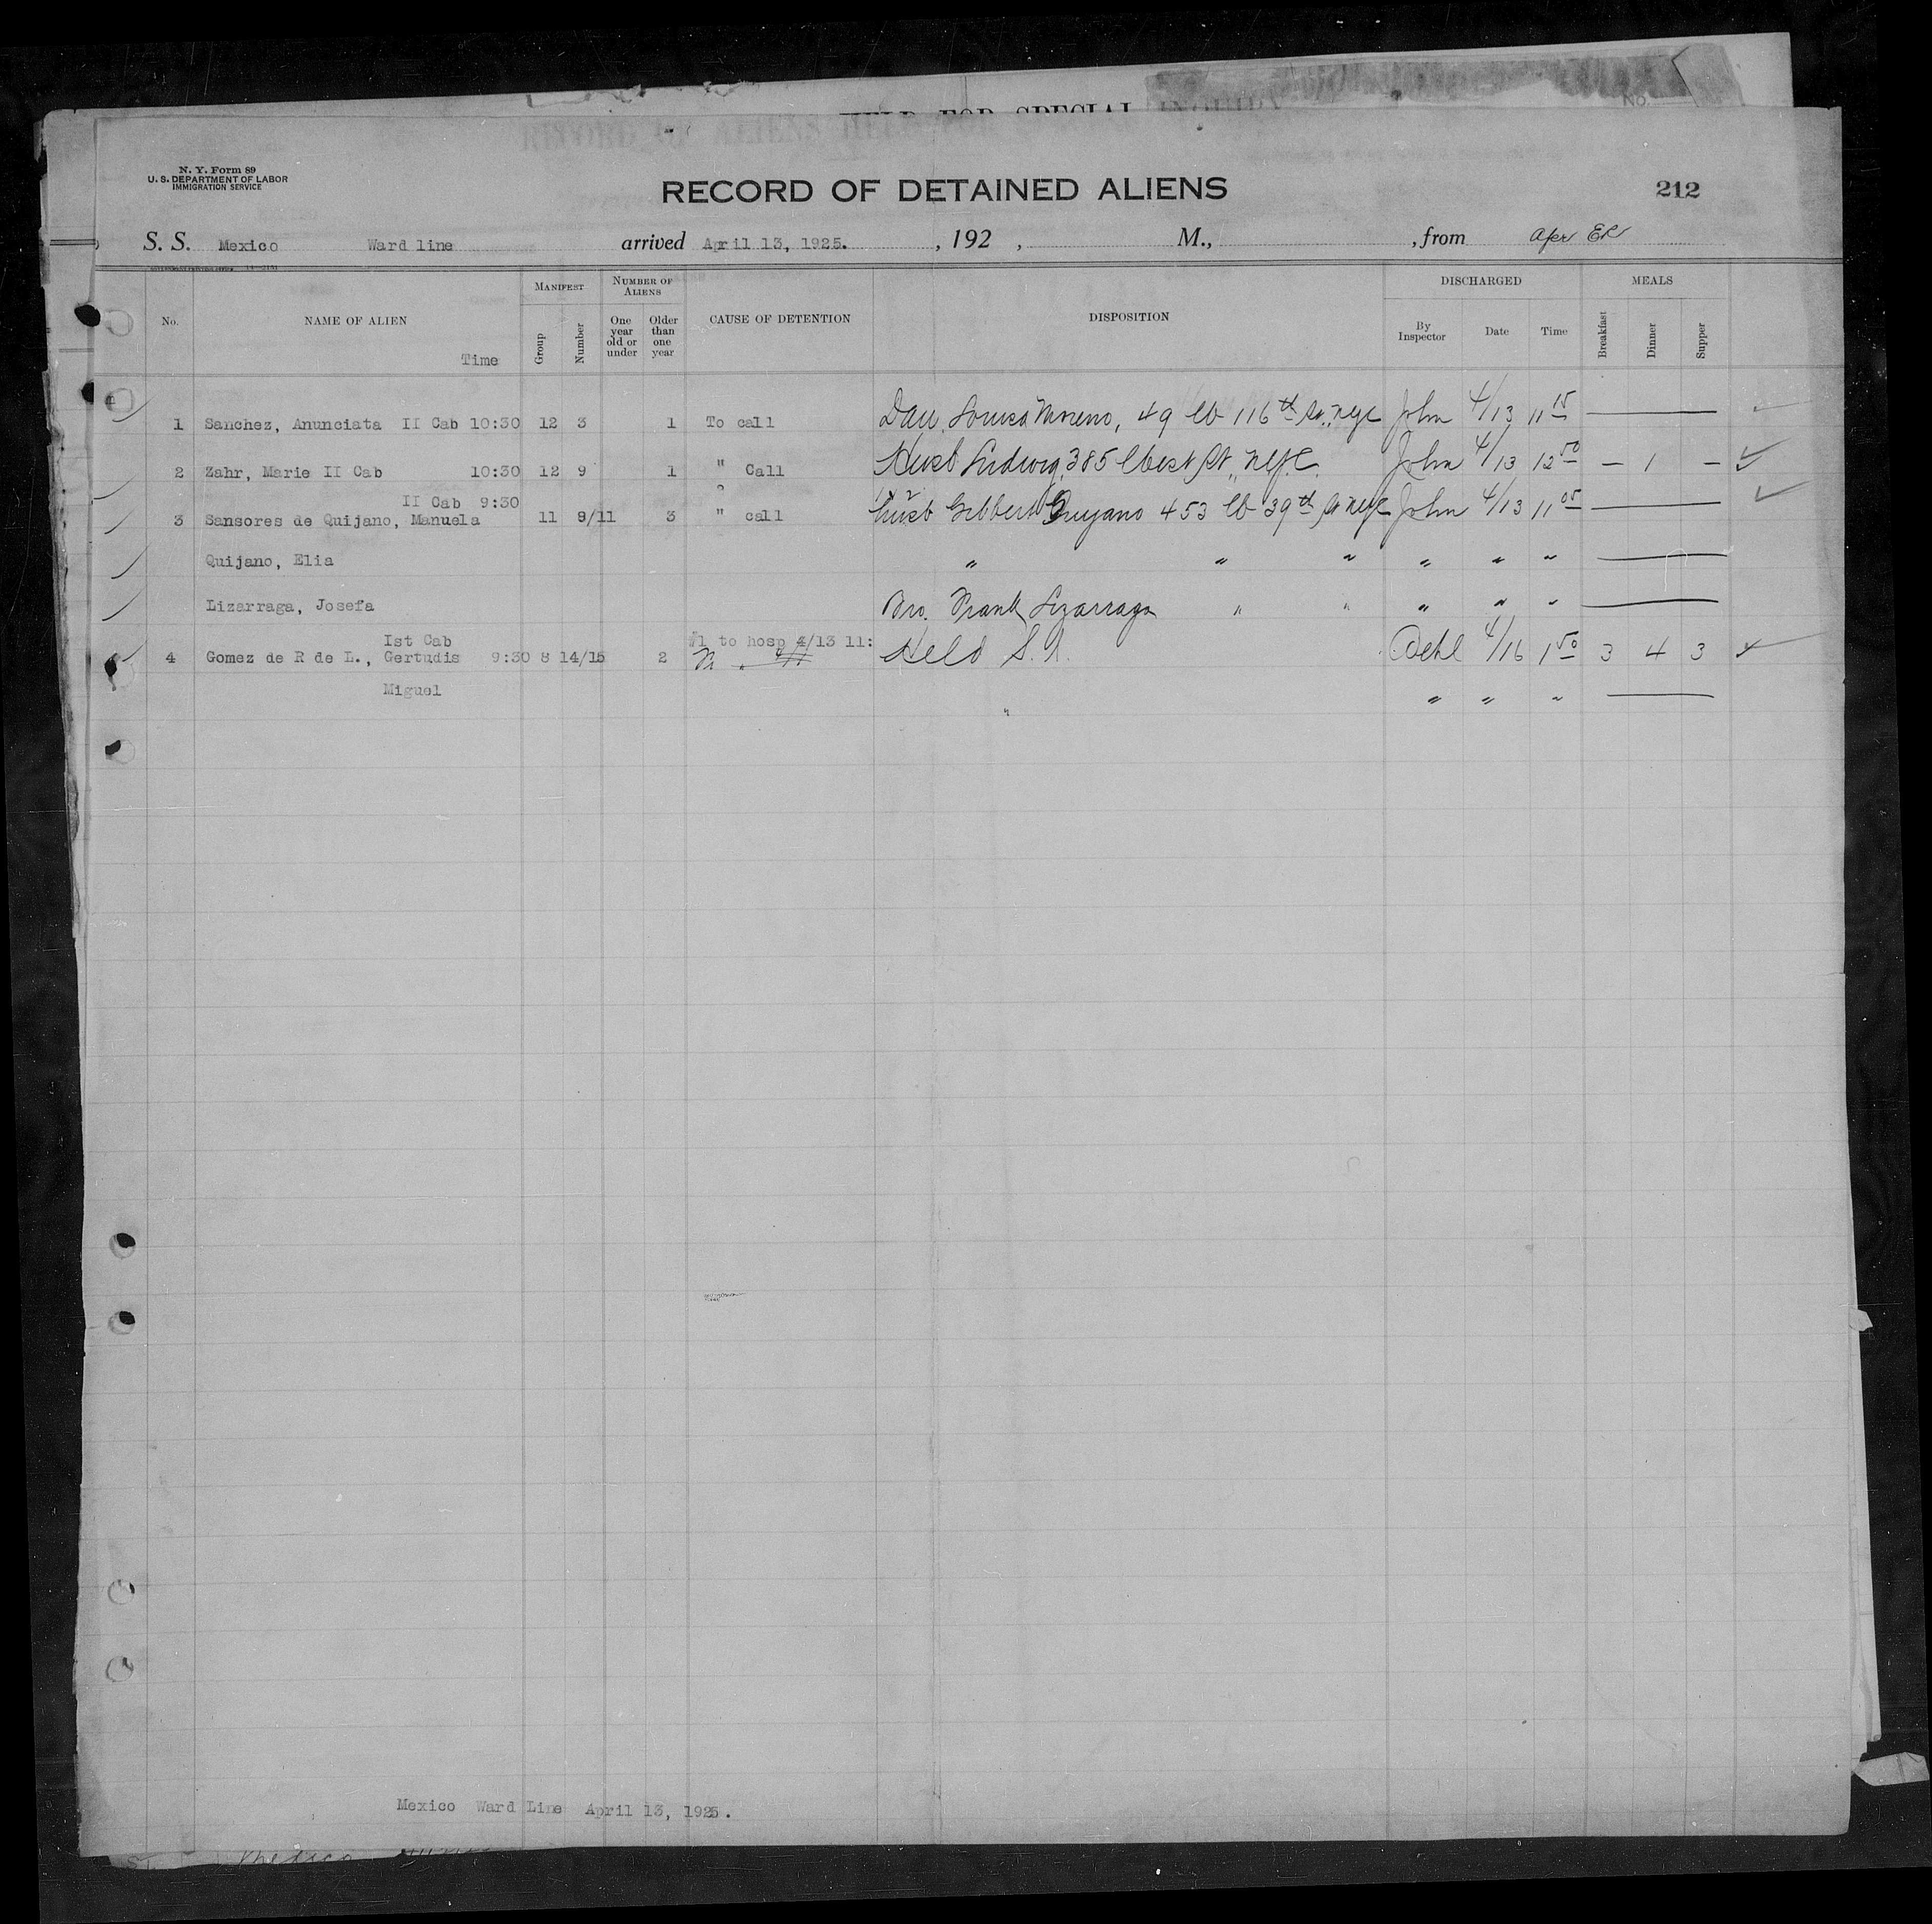 HELD FOR SPECIAL INQUIRY
No.
RECORD OF ALIENS HELD FOR SPECIAL
N. Y. Form 89
U. S. DEPARTMENT OF LABOR
IMMIGRATION SERVICE
RECORD OF DETAINED ALIENS
212
S. S. Mexico Ward line arrived April 13, 1925. , 192 , M., , from
No. NAME OF ALIEN Time MANIFEST Group Number NUMBER OF ALIENS One year old or under Older than one year CAUSE OF DETENTION DISPOSITION DISCHARGED By Inspector Date Time MEALS Breakfast Dinner Supper
1 Sanchez, Anunciata II Cab 10:30 12 3 1 To call Dau. Louisa Moreno, 49 W 116th St., NYC John 4/13 11 15
2 Zahr, Marie II Cab 10:30 12 9 1 " Call Husb Ludwig, 385 West St., NYC John 4/13 12 50 — 1 —
II Cab 9:30
3 Sansores de Quijano, Manuela 11 9/11 3 " call Husb Gilbert Quijano 453 W 39th St NYC John 4/13 11 05
Quijano, Elia " " " " " "
Lizarraga, Josefa Bro. Frank Lizarraga " " " " "
Ist Cab #1 to hosp 4/13 11:
4 Gomez de R de L., Gertudis 9:30 8 14/15 2 Held S.I. 4/16 1 50 3 4 3
Miguel " " " "
Mexico Ward Line April 13, 1925.